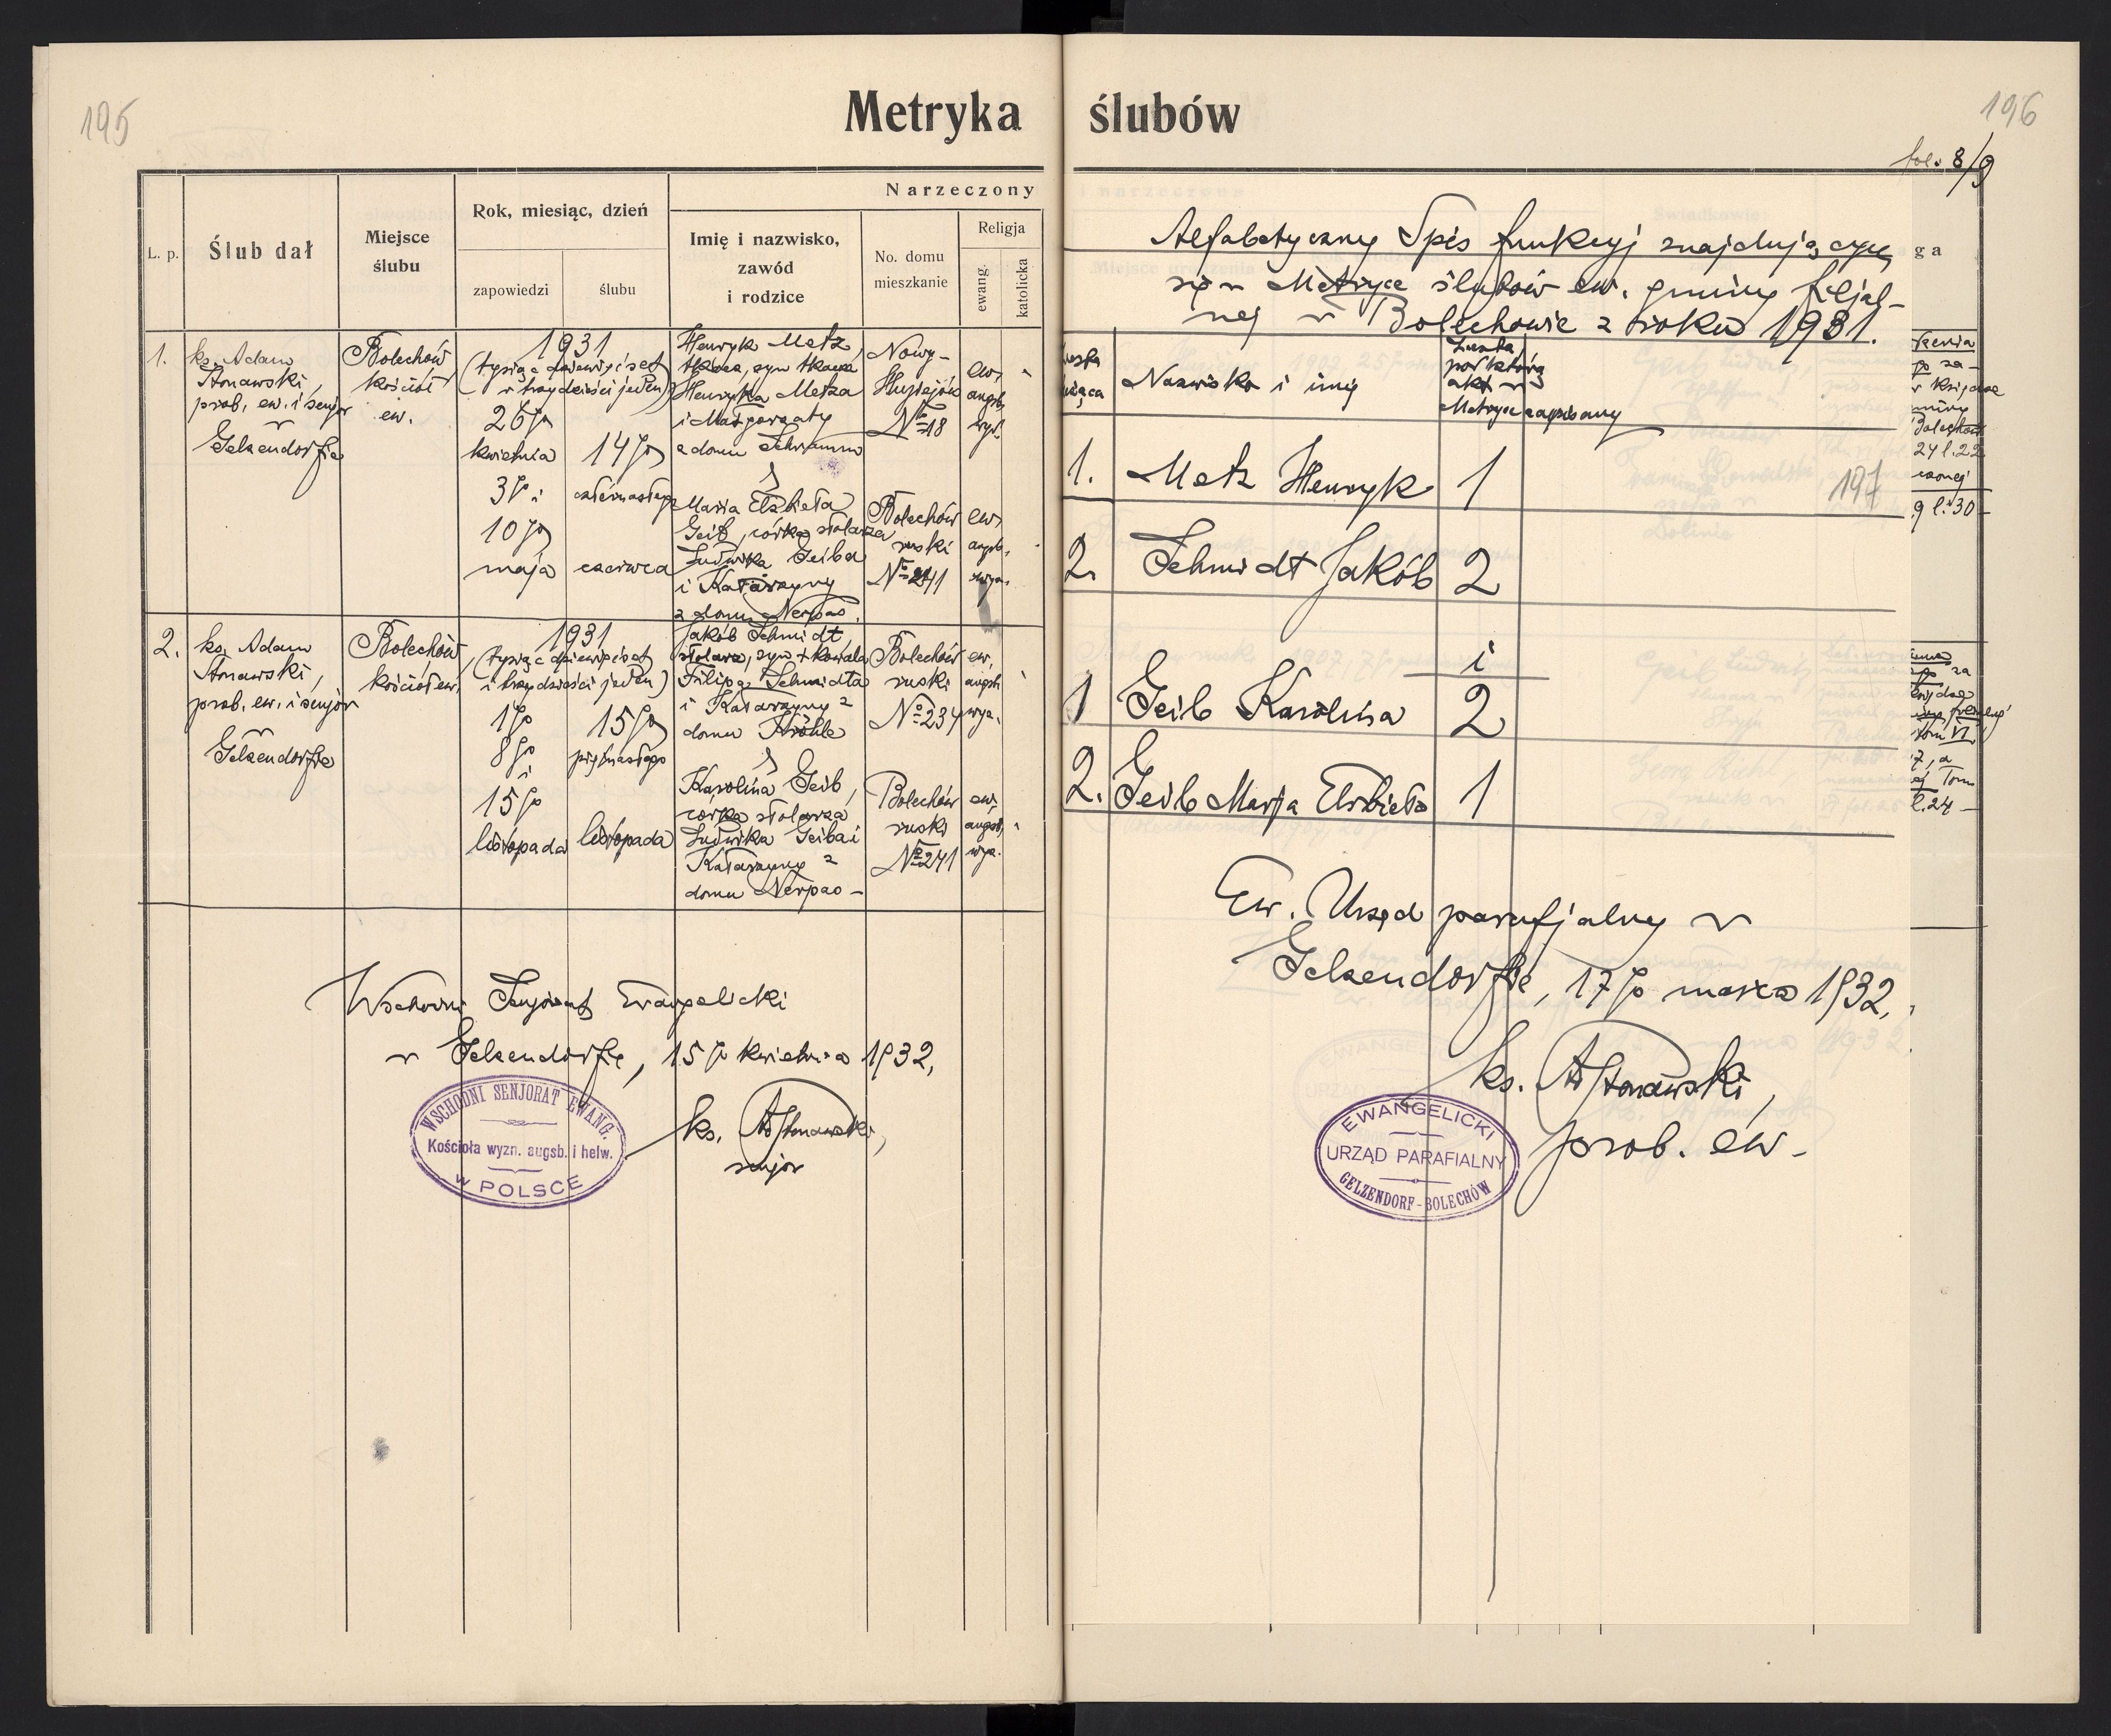 195
Metryka
L. p.
Ślub dał
Miejsce
ślubu
Rok, miesiąc, dzień
zapowiedzi
ślubu
Narzeczony
Imię i nazwisko,
zawód
i rodzice
No. domu
mieszkanie
Religja
ewang.
katolicka
1.
ks. Adam
Stonawski,
prob. ew. i senjor
w
Gelsendorfie
Bolechów,
kościół
ew.
1931
(tysiąc dziewięćset
trzydzieści jeden)
26go
kwietnia
3go i
10go
maja
14go
czternastego
czerwca
Henryk Metz,
tkacz, syn tkacza
Henryka Metza
i Małgorzaty
z domu Schramm
i
Maria Elżbieta
Geib, córka stolarza
Ludwika Geiba
i Katarzyny
z domu Nerpas.
Nowy-
No 18
Bolechów
ruski
No 241
ew.
augsb.
wyz.
ew.
augsb.
wyzn.
2.
ks. Adam
Stonawski,
prob. ew. i senjor
w
Gelsendorfie
Bolechów,
kościół ew.
1931
(tysiąc dziewięćset
i trzydzieści jeden)
1go
8go
i
15go
listopada
15go
piętnastego
listopada
Jakób Schmidt,
stolarz, syn + kowala
Filipa Schmidta
i Katarzyny z
domu Kröhle
i
Karolina Geib,
córka stolarza
Ludwika Geiba i
Katarzyny z
domu Nerpas -
Bolechów
ruski
No 234
Bolechów
ruski
No 241
ew.
augsb.
wyz.
ew.
augsb.
wyz.
Wschodni Senjorat Ewangelicki
w Gelsendorfie, 15go kwietnia 1932,
WSCHODNI SENJORAT EWANG.
Kościoła wyzn. augsb. i helw.
w POLSCE
ks. A Stonawski,
senjor
ślubów
196
fol. 8/9
Alfabetyczny Spis funkcyj znajdujących
się w Metryce ślubów ew. gminy filjal-
nej w Bolechowie z roku 1931.
Nazwisko i imię
Liczba
pod którą
akt w
Metryce zapisany
1. Metz Henryk 1
197
2. Schmidt Jakób 2
i
1 Geib Karolina 2
2. Geib Marja Elżbieta 1
Ew. Urząd parafjalny w
Gelsendorfie, 17go marca 1932,
ks. A Stonawski,
prob. ew.
EWANGELICKI
URZĄD PARAFIALNY
GELZENDORF-BOLECHÓW
ga
24 l. 22
9 l. 30 -
tom VI
Tom
l. 24 -